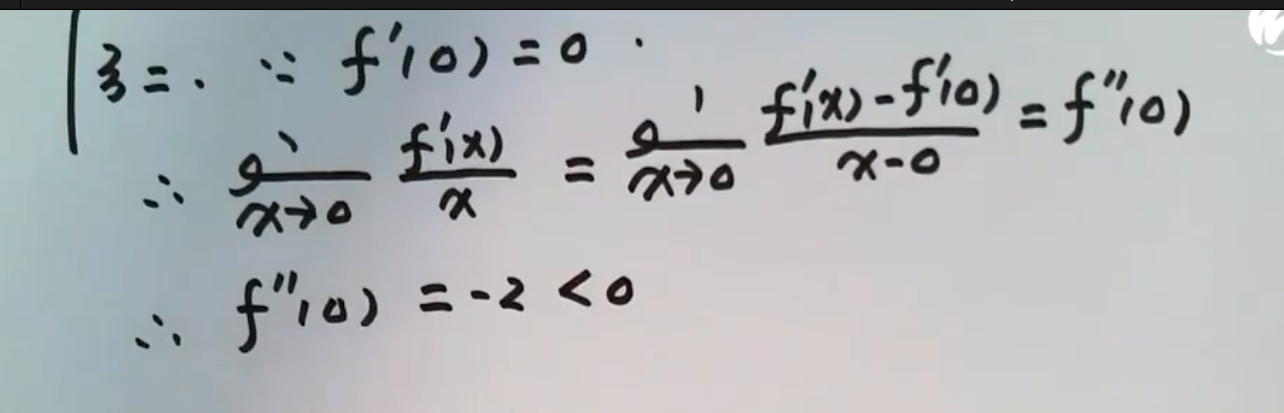 ∵ f'(0) = 0 .
∴ lim x→0 f'(x)/x = lim x→0 (f'(x) - f'(0))/(x-0) = f''(0)
∴ f''(0) = -2 < 0